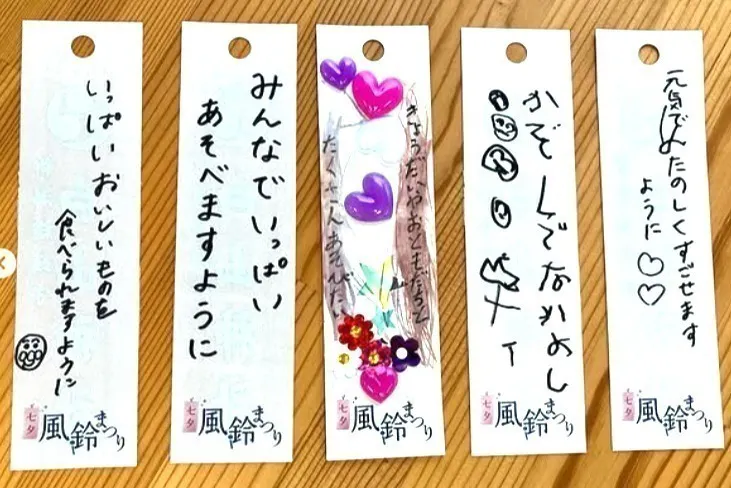 いっぱいおいしいものを
食べられますように
七夕
風鈴まつり
みんなでいっぱい
あそべますように
七夕
風鈴まつり
きょうだいやおともだちと
たくさんあそびたい
七夕
風鈴まつり
かぞくでなかよし
七夕
風鈴まつり
元気でたのしくすごせます
ように♡♡
七夕
風鈴まつり